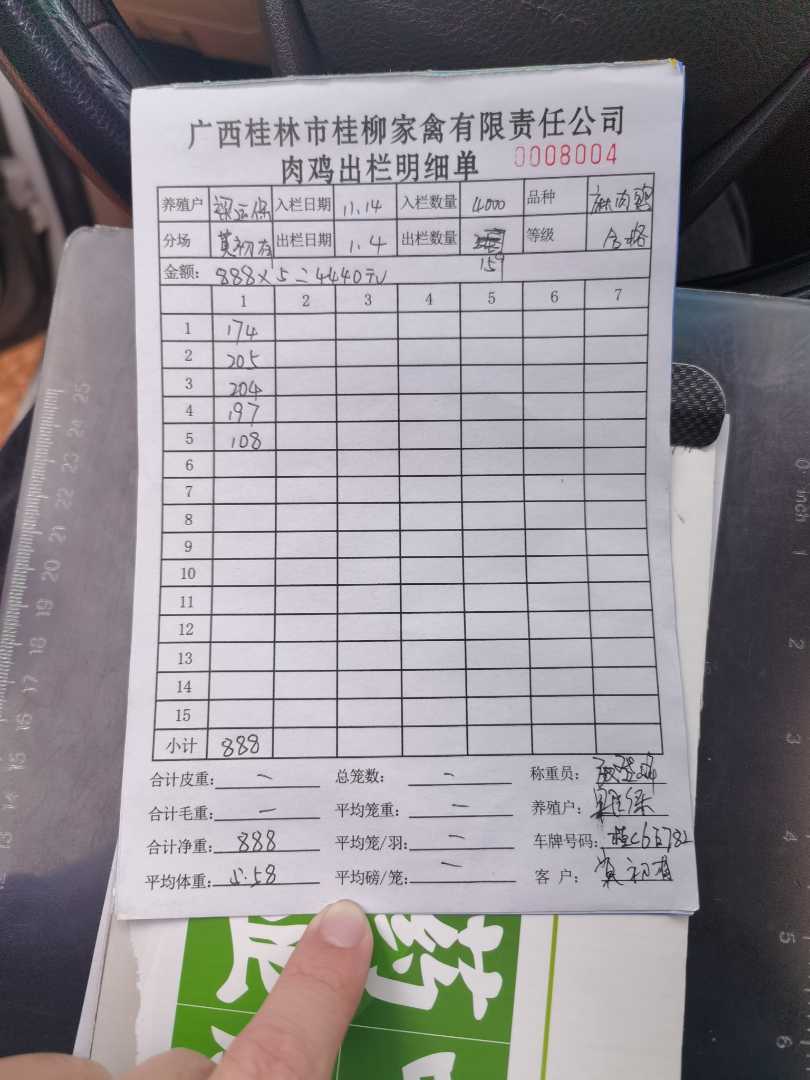 广西桂林市桂柳家禽有限责任公司
肉鸡出栏明细单 0008004
养殖户 入栏日期 11.14 入栏数量 4000 品种 麻肉鸡
分场 莫初有 出栏日期 1.4 出栏数量 159 等级 合格
金额: 888×5=4440元
1 2 3 4 5 6 7
1 174
2 205
3 204
4 197
5 108
6
7
8
9
10
11
12
13
14
15
小计 888
合计皮重: - 总笼数: - 称重员:
合计毛重: - 平均笼重: - 养殖户:
合计净重: 888 平均笼/羽: - 车牌号码:
平均体重: 5.58 平均磅/笼: - 客户: 莫初有
25
24
23
22
21
20
19
18
17
16
15
14
13
12
0 inch
1
2
3
4
5
6
药